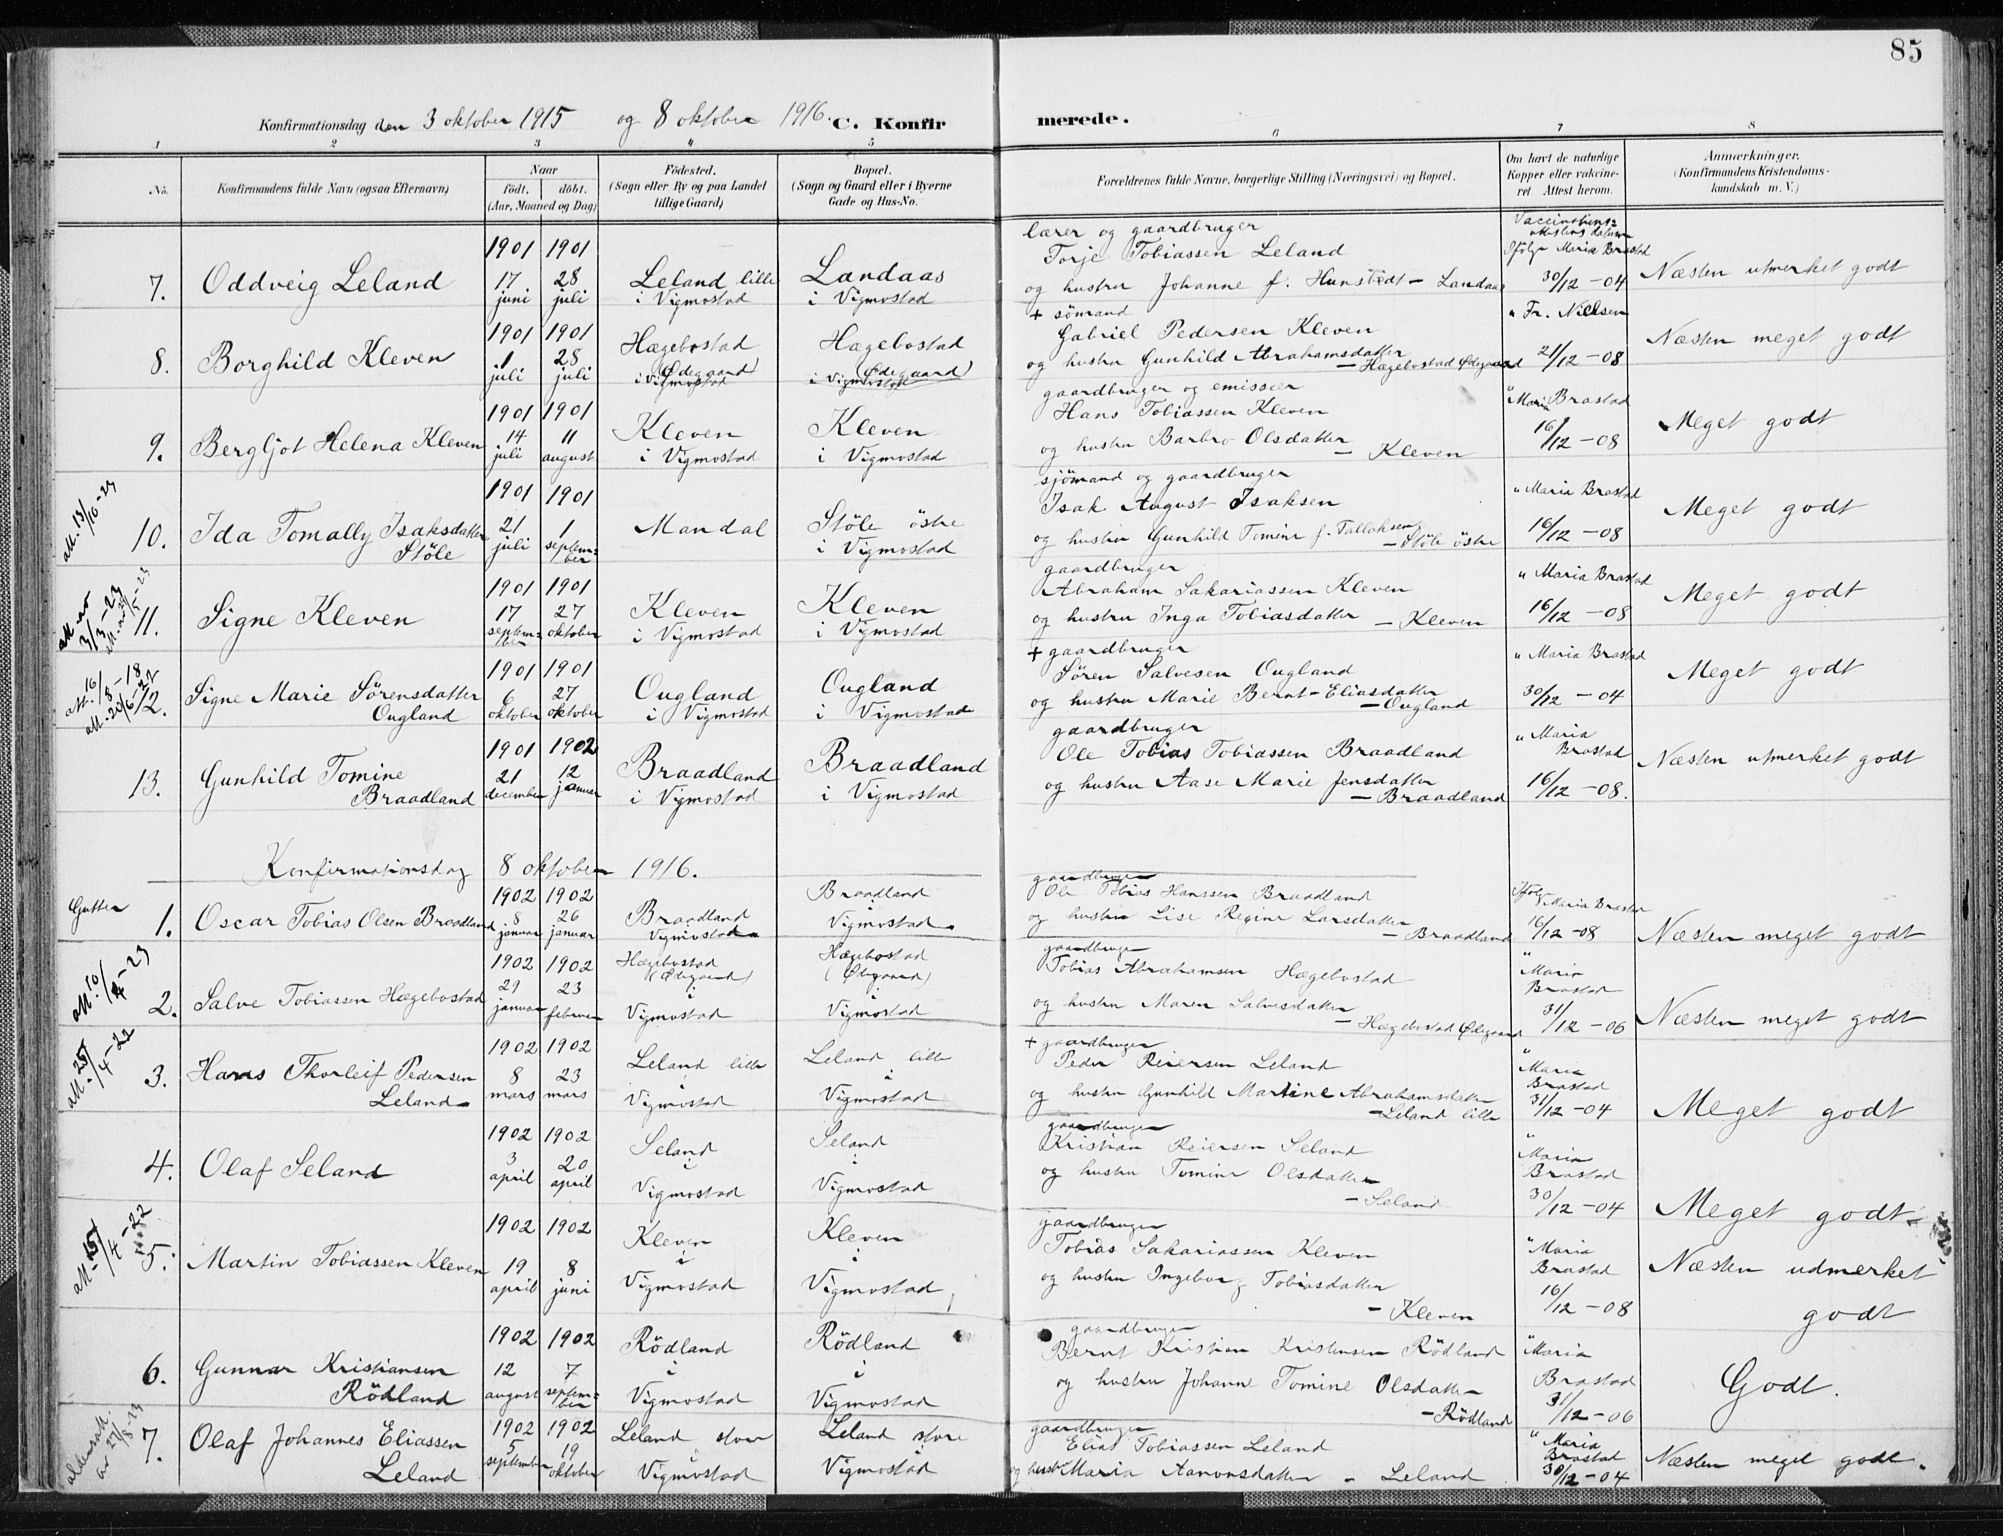 85
Konfirmationsdag den 3 oktober 1915 og 8 oktober 1916. C. Konfirmerede.
1 2 3 4 5 6 7 8
No. Konfirmandens fulde Navn (ogsaa Efternavn) Naar født. døbt. (Aar, Maaned og Dag) Fødested. (Sogn eller By og paa Landet tillige Gaard) Bopæl. (Sogn og Gaard eller i Byerne Gade og Hus-No. Forældrenes fulde Navne, borgerlige Stilling (Næringsvei) og Bopæl. Om havt de naturlige Kopper eller vaccineret. Attest herom. Anmærkninger. (Konfirmandens Kristendomskundskab m. V.)
7. Oddveig Leland
1901 17 juni
1901 28 juli
Leland lille
i Vigmostad
Landaas
i Vigmostad
lærer og gaardbruger
Torje Tobiassen Leland
og hustru Johanne f. Hunstedt - Landaas
Vaccinations-
attestens datum
Ifölge Maria Brastad
30/12 - 04
Næsten utmerket godt
8. Borghild Kleven
1901 1 juli
1901 28 juli
Hægebostad
(Ødegaard)
i Vigmostad
Hægebostad
(Ødegaard)
i Vigmostad
+ sömand
Gabriel Pedersen Kleven
og hustru Gunhild Abrahamsdatter
- Hægebostad Ødegaard
" Fr. Nielsen
21/12 - 08
Næsten meget godt
9. Bergljot Helena Kleven
1901 14 juli
1901 11 august
Kleven
i Vigmostad
Kleven
i Vigmostad
gaardbruger og emissær
Hans Tobiassen Kleven
og hustru Barbro Olsdatter
- Kleven
" Maria Brastad
16/12 - 08
Meget godt
att. 13/10-23
10. Ida Tomally Isaksdatter
Stöle
1901 21 juli
1901 1 september
Mandal
Stöle östre
i Vigmostad
sjömand og gaardbruger
Isak August Isaksen
og hustru Gunhild Tomine f. Tallaksen
- Stöle östre
" Maria Brastad
16/12 - 08
Meget godt
11. Signe Kleven
1901 17 september
1901 27 oktober
Kleven
i Vigmostad
Kleven
i Vigmostad
gaardbruger
Abraham Sakariassen Kleven
og hustru Inga Tobiasdatter - Kleven
" Maria Brastad
16/12 - 08
Meget godt
att. 16/8-18
att. 20/6-22
12. Signe Marie Sörensdatter
Ougland
1901 6 oktober
1901 27 oktober
Ougland
i Vigmostad
Ougland
i Vigmostad
+ gaardbruger
Sören Salvesen Ougland
og hustru Marie Bernt-Eliasdatter
- Ougland
" Maria Brastad
30/12 - 04
Meget godt
13. Gunhild Tomine
Braadland
1901 21 december
1902 12 januar
Braadland
i Vigmostad
Braadland
i Vigmostad
gaardbruger
Ole Tobias Tobiassen Braadland
og hustru Aase Marie Jensdatter
- Braadland
" Maria
Brastad
16/12 - 08.
Næsten utmerket godt
Konfirmationsdag 8 oktober 1916.
Gutter
1. Oscar Tobias Olsen Braadland
1902 8 januar
1902 26 januar
Braadland
Vigmostad
Braadland
i
Vigmostad
gaardbruger
Ole Tobias Hanssen Braadland
og hustru Lise Regine Larsdatter
- Braadland
Ifölge Maria Brastad
16/12 - 08
Næsten meget godt
att. 10/4-23
2. Salve Tobiassen Hægebostad
1902 21 januar
1902 23 februar
Hægebostad
(Ødegaard)
i
Vigmostad
Hægebostad
(Ødegaard)
i
Vigmostad
gaardbruger
Tobias Abrahamsen Hægebostad
og hustru Maren Salvesdatter
- Hægebostad Ødegaard
" Maria
Brastad
31/12 - 06
Næsten meget godt
att. 25/4-22
3. Hans Thorleif Pedersen
Leland
1902 8 mars
1902 23 mars
Leland lille
i
Vigmostad
Leland lille
i
Vigmostad
+ gaardbruger
Peder Reiersen Leland
og hustru Gunhild Martine Abrahamsdatter
- Leland lille
" Maria
Brastad
31/12 - 04
Meget godt
4. Olaf Seland
1902 3 april
1902 20 april
Seland
i
Vigmostad
Seland
i
Vigmostad
gaardbruger
Kristian Reiersen Seland
og hustru Tomine Olsdatter
- Seland
" Maria
Brastad
30/12 - 04
Meget godt
5. Martin Tobiassen Kleven
1902 19 april
1902 8 juni
Kleven
i
Vigmostad
Kleven
i
Vigmostad
gaardbruger
Tobias Sakariassen Kleven
og hustru Ingeborg Tobiasdatter
- Kleven
" Maria
Brastad
16/12 - 08
Næsten udmerket
godt
6. Gunnar Kristiansen
Rödland
1902 12 august
1902 7 september
Rödland
i
Vigmostad
Rödland
i
Vigmostad
gaardbruger
Bernt Kristian Kristensen Rödland
og hustru Johanne Tomine Olsdatter
- Rödland
" Maria
Brastad
31/12 - 06
Godt.
aldersatt.
av 27/8-23
7. Olaf Johannes Eliassen
Leland
1902 5 september
1902 19 oktober
Leland store
i
Vigmostad
Leland store
i
Vigmostad
gaardbruger
Elias Tobiassen Leland
og hustru Maria Aanonsdatter - Leland
" Maria
Brastad
30/12 - 04
Næsten meget godt.